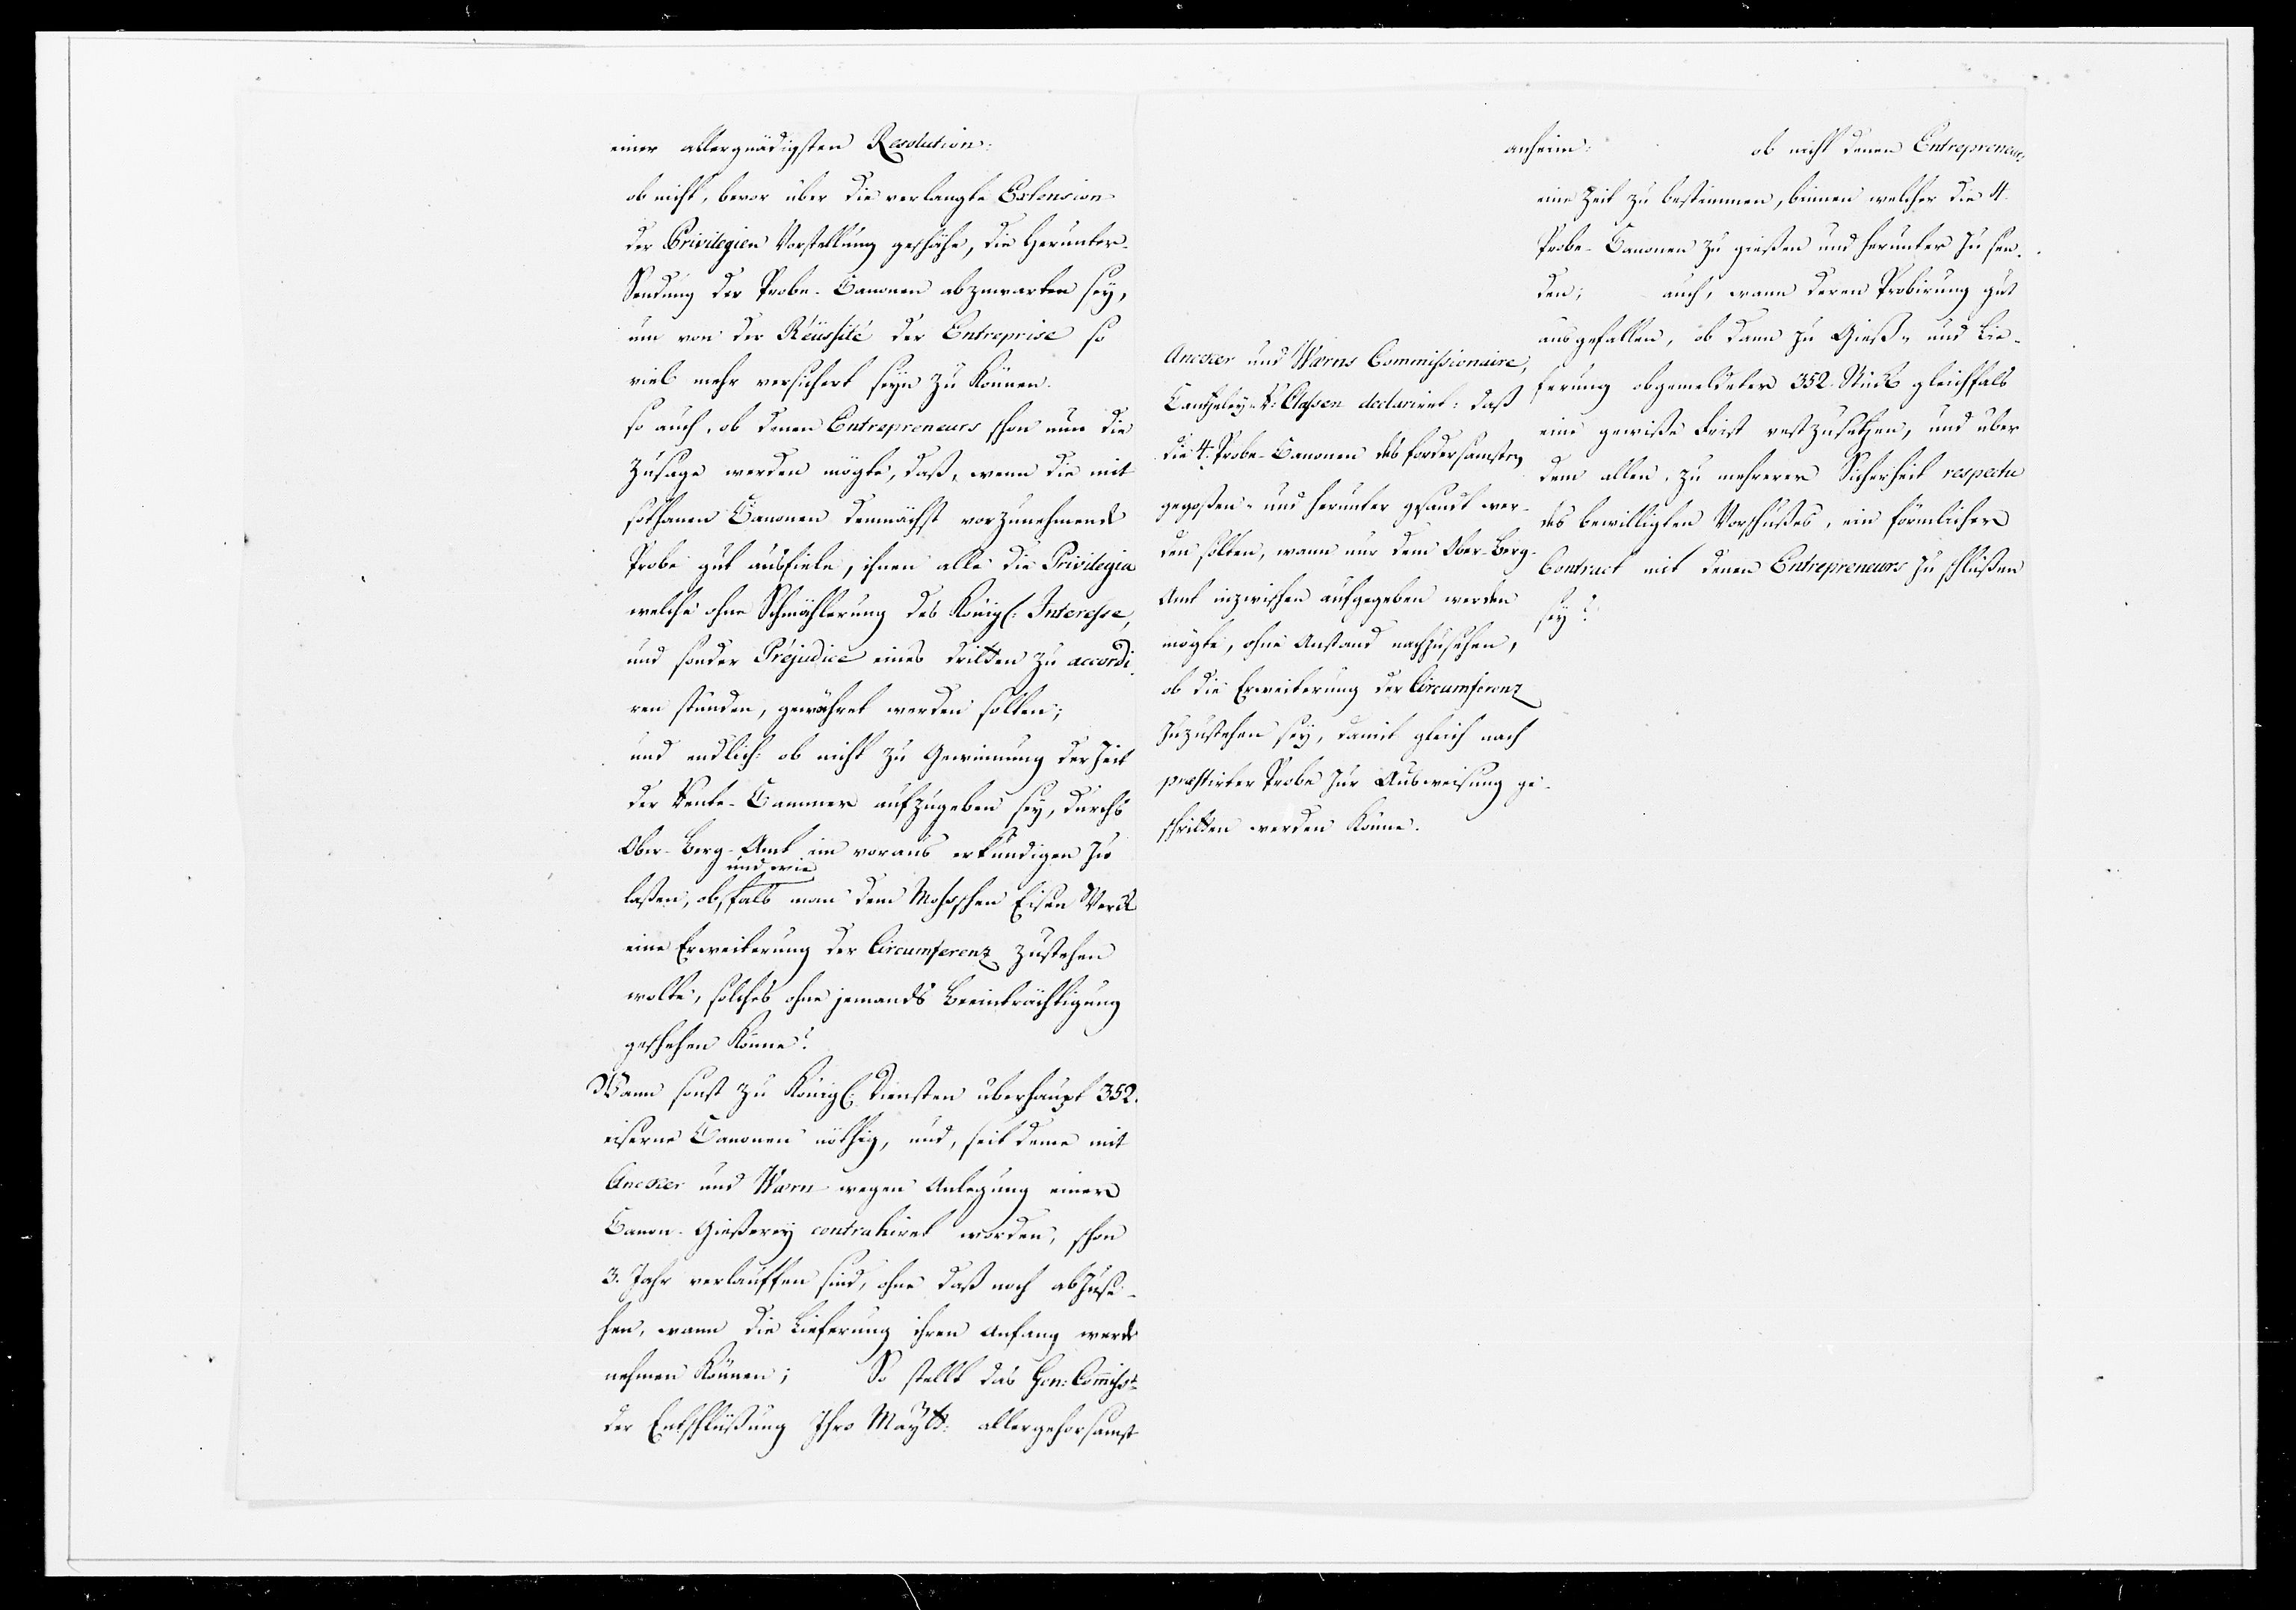 einer allergnädigsten Resolution:
ob nicht, bevor über die verlangte Extension
der Privilegien Vorstellung geschähe, die Herunter-
Sendung der Probe-Canonen abzuwarten sey,
um von der Réüssité der Entreprise so
viel mehr versichert seyn zu können.
so auch, ob denen Entrepreneurs schon nun die
Zusage werden mögte, daß, wenn die mit
sothanen Canonen demnächst vorzunehmende
Probe gut ausfiele, ihnen alle die Privilegia
welche ohne Schmählerung des Königl: Interesse,
und sonder Préjudice eines dritten zu accordi-
ren stünden, gewähret werden solten;
und endlich: ob nicht zu Gewinnung der Zeit
der Rente-Cammer aufzugeben sey, durchs
Ober-Berg-Amt im voraus erkundigen zu
und wie
laßen, ob, falls man dem Moßschen Eisen Werck
eine Erweiterung der Circumferenz zustehen
wolte, solches ohne jemands Beeinträchtigung
geschehen könne?
Wann sonst zu Königl: Diensten überhaupt 352.
eiserne Canonen nöthig, und, seit deme mit
Ancker und Wærn wegen Anlegung einer
Canon-Gießerey contrahiret worden, schon
3. Jahr verlauffen sind, ohne daß noch abzuse-
hen, wann die Lieferung ihren Anfang werde
nehmen können; So stellt das Gen: Commiss:t
der Entschlüßung Ihro Mayt: allergehorsamst
anheim: ob nicht denen Entrepreneurs
eine Zeit zu bestimmen, binnen welcher die 4.
Probe-Canonen zu gießen und herunter zu sen-
den; auch, wann deren Probirung gut
ausgefallen, ob dann zu Gieß- und Lie-
ferung obgemeldeter 352. Stück gleichfals
eine gewiße Frist vestzusetzen, und über
dem allen, zu mehrerer Sicherheit respectu
des bewilligten Vorschußes, ein förmlicher
Contract mit denen Entrepreneurs zu schlüßen
sey?
Ancker und Wærns Commissionaire,
Cantzeley-R: Classen declariret: daß
die 4. Probe-Canonen des fordersamsten
gegoßen- und herunter gesandt wer-
den solten, wann nur dem Ober-Berg-
Amt inzwischen aufgegeben werden
mögte, ohne Anstand nachzusehen,
ob die Erweiterung der Circumferenz
zuzustehen sey, damit gleich nach
præstirter Probe zur Ausweisung ge-
schritten werden könne.